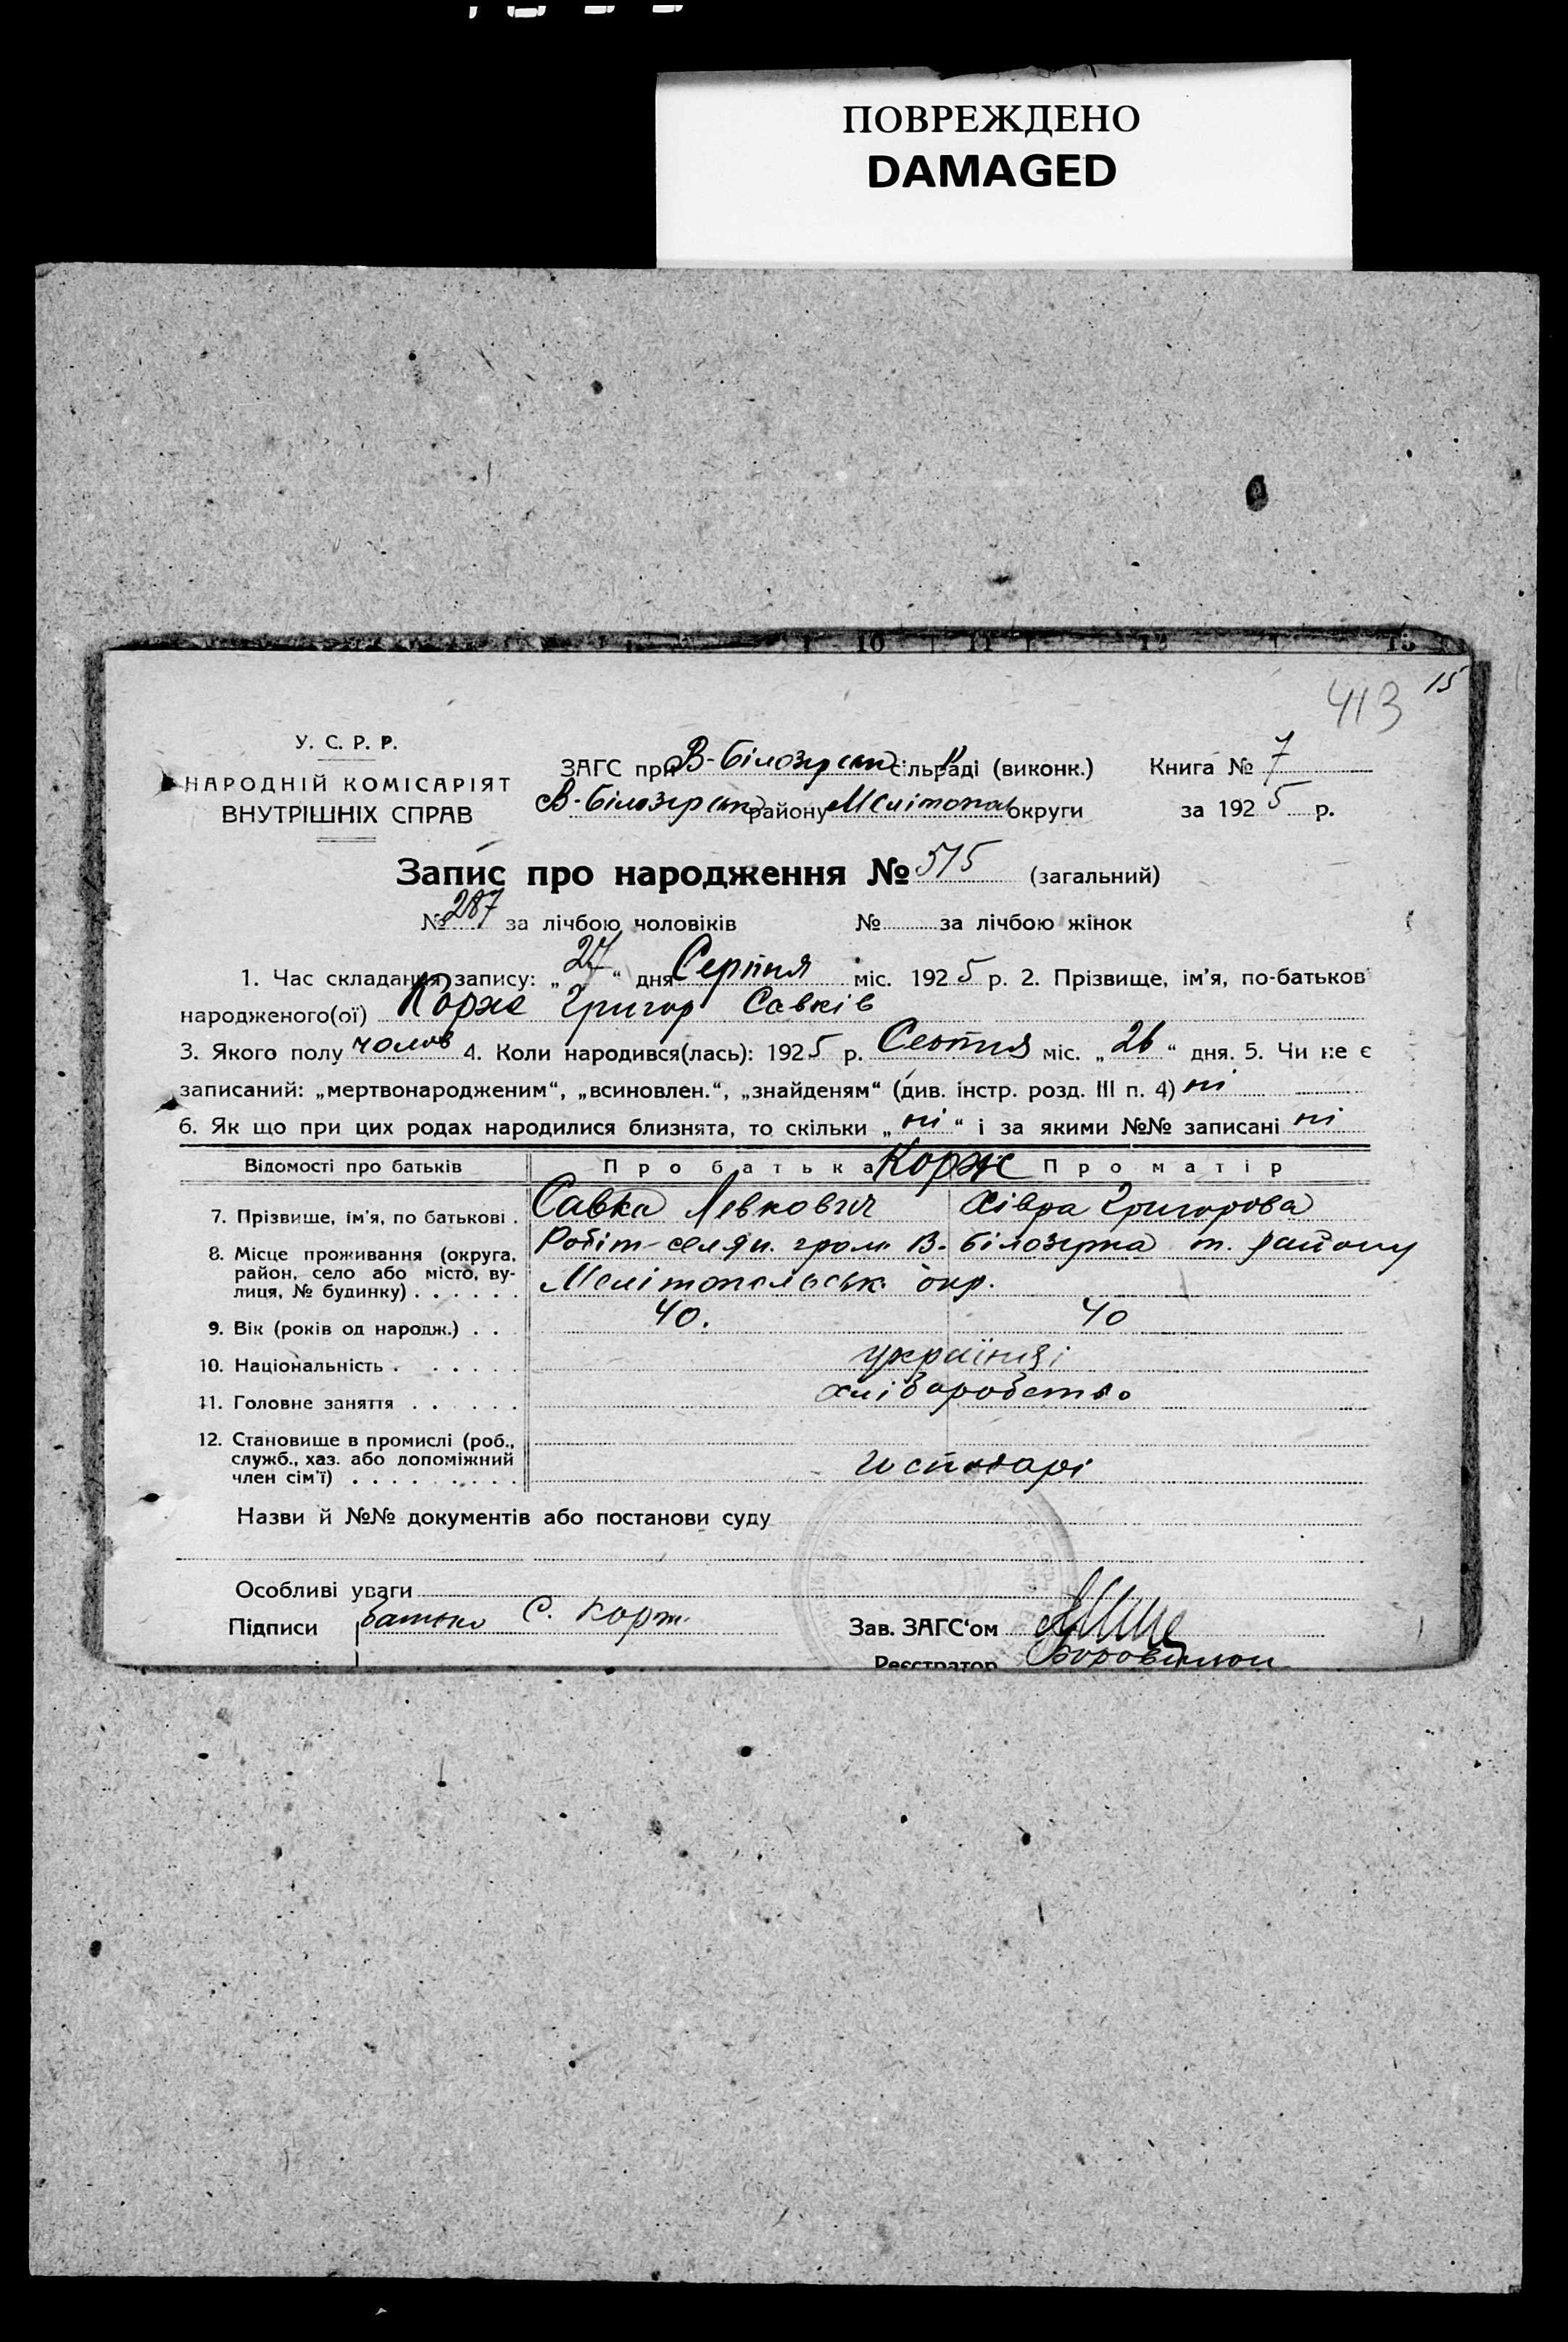 ПОВРЕЖДЕНО
DAMAGED
10 11 12 13
15
413
У. С. Р. Р.
НАРОДНІЙ КОМІСАРІЯТ
ВНУТРІШНІХ СПРАВ
ЗАГС при В-Білозірськ сільраді (виконк.) Книга № 7
В-Білозірськ району Мелітопол округи за 1925 р.
Запис про народження № 515 (загальний)
№ 287 за лічбою чоловіків № за лічбою жінок
1. Час складання запису: „27“ дня Серпня міс. 1925 р. 2. Прізвище, ім'я, по-батьков
народженого(ої) Корж Григор Савків
3. Якого полу чолов 4. Коли народився(лась): 1925 р. міс. „26“ дня. 5. Чи не є
записаний: „мертвонародженим“, „всиновлен.“, „знайденям“ (див. інстр. розд. III п. 4) ні
6. Як що при цих родах народилися близнята, то скільки „ні“ і за якими №№ записані ні
Відомості про батьків Про батька Корж Про матір
7. Прізвище, ім'я, по батькові . Савка Левкович Хівра Григорова
8. Місце проживання (округа, район, село або місто, вулиця, № будинку) . . . . . . Робіт-селян. гром. В. Білозірка т. району
Мелітопольськ. окр.
9. Вік (років од народж.) . . 40. 40
10. Національність . . . . . . українці
11. Головне заняття . . . . . . хліборобство
12. Становище в промислі (роб., служб., хаз. або допоміжний член сім'ї) . . . . . . . . . господарі
Назви й №№ документів або постанови суду
Особливі уваги
Підписи батько С. Корж. Зав. ЗАГС'ом
Реєстратор